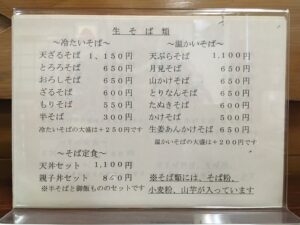 生そば類
～冷たいそば～
天ざるそば 1,150円
とろろそば 650円
おろしそば 650円
ざるそば 600円
もりそば 550円
半そば 300円
冷たいそばの大盛は+250円です
～そば定食～
天丼セット 1,100円
親子丼セット 850円
※半そばと御飯もののセットです
～温かいそば～
天ぷらそば 1,100円
月見そば 650円
山かけそば 650円
とりなんそば 650円
たぬきそば 600円
かけそば 500円
生姜あんかけそば 650円
温かいそばの大盛は+200円です
※そば類には、そば粉、
小麦粉、山芋が入っています